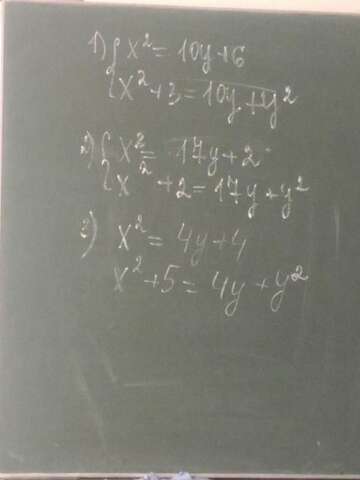 1) { x² = 10y + 6
x² + 3 = 10y + y²
2) { x² = 17y + 2
x² + 2 = 17y + y²
3) x² = 4y + 4
x² + 5 = 4y + y²